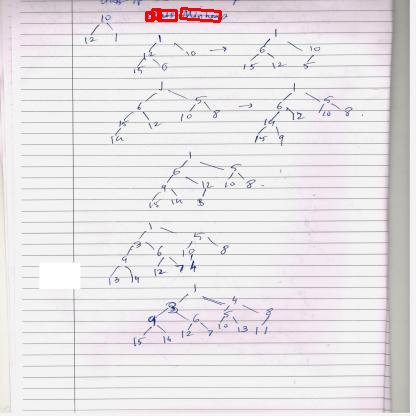 10
12 1
1 1
12 10 → 6 10
15 6 15 12 5
1 1
6 5 → 6 5
15 12 10 8 14 12 10 8
14 15 9
1
6 5
9 12 10 8
15 14 8
1
3 5
9 6 10 8
13 14 12 7 4
1
3 4
9 6 5 8
15 14 12 7 10 13 11